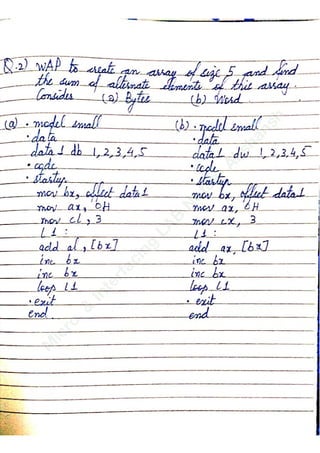 Q.2) WAP to create an array of size 5 and find
the sum of alternate elements of this array.
Consider (a) Bytes (b) Word
(a) .model small
.data
data1 db 1,2,3,4,5
.code
.startup
mov bx, offset data1
mov ax, 0H
mov cl, 3
L1 :
add al, [bx]
inc bx
inc bx
loop L1
.exit
end
(b) .model small
.data
data1 dw 1,2,3,4,5
.code
.startup
mov bx, offset data1
mov ax, 0H
mov cx, 3
L1 :
add ax, [bx]
inc bx
inc bx
loop L1
.exit
end